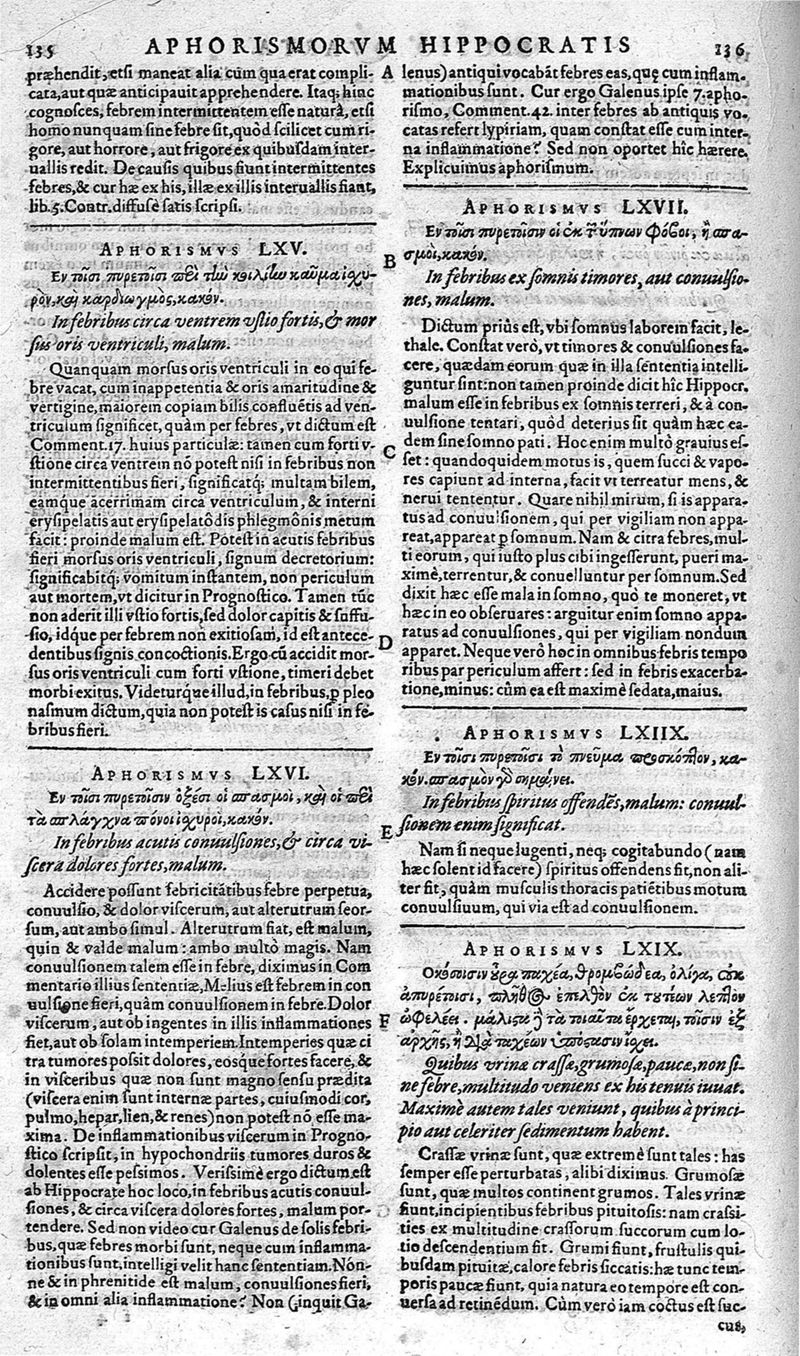 135 APHORISMORVM HIPPOCRATIS 136
præhendit, etsi maneat alia cùm qua erat compli-
cata, aut quæ anticipauit apprehendere. Itaq; hinc
cognosces, febrem intermittentem esse naturâ, etsi
homo nunquam sine febre sit, quòd scilicet cum ri-
gore, aut horrore, aut frigore ex quibusdam inter-
uallis redit. De causis quibus fiunt intermittentes
febres, & cur hæ ex his, illæ ex illis interuallis fiant,
lib. 5. Contr. diffusè satis scripsi.
APHORISMVS LXV.
Εν τοῖσι πυρετοῖσι περὶ τὴν κοιλίην καῦμα ἰσχυ-
ρὸν, καὶ καρδιωγμὸς, κακόν.
In febribus circa ventrem vstio fortis, & mor
sus oris ventriculi, malum.
Quanquam morsus oris ventriculi in eo qui fe-
bre vacat, cum inappetentia & oris amaritudine &
vertigine, maiorem copiam bilis confluētis ad ven-
triculum significet, quàm per febres, vt dictum est
Comment. 17. huius particulæ: tamen cum forti v-
stione circa ventrem nō potest nisi in febribus non
intermittentibus fieri, significatq; multam bilem,
eámque acerrimam circa ventriculum, & interni
erysipelatis aut erysipelatôdis phlegmônis metum
facit: proinde malum est. Potest in acutis febribus
fieri morsus oris ventriculi, signum decretorium:
significabitq; vomitum instantem, non periculum
aut mortem, vt dicitur in Prognostico. Tamen tūc
non aderit illi vstio fortis, sed dolor capitis & suffu-
sio, idque per febrem non exitiosam, id est antece-
dentibus signis concoctionis. Ergo cū accidit mor-
sus oris ventriculi cum forti vstione, timeri debet
morbi exitus. Videturque illud, in febribus, p pleo
nasmum dictum, quia non potest is casus nisi in fe-
bribus fieri.
APHORISMVS LXVI.
Εν τοῖσι πυρετοῖσιν ὀξέσι οἱ σπασμοὶ, καὶ οἱ περὶ
τὰ σπλάγχνα πόνοι ἰσχυροὶ, κακόν.
In febribus acutis conuulsiones, & circa vi-
scera dolores fortes, malum.
Accidere possunt febricitātibus febre perpetua,
conuulsio, & dolor viscerum, aut alterutrum seor-
sum, aut ambo simul. Alterutrum fiat, est malum,
quin & valde malum: ambo multò magis. Nam
conuulsionem talem esse in febre, diximus in Com
mentario illius sententiæ, Melius est febrem in con
uulsione fieri, quàm conuulsionem in febre. Dolor
viscerum, aut ob ingentes in illis inflammationes
fiet, aut ob solam intemperiem. Intemperies quæ ci
tra tumores possit dolores, eosque fortes facere, &
in visceribus quæ non sunt magno sensu prædita
(viscera enim sunt internæ partes, cuiusmodi cor,
pulmo, hepar, lien, & renes) non potest nō esse ma-
xima. De inflammationibus viscerum in Progno-
stico scripsit, in hypochondriis tumores duros &
dolentes esse pessimos. Verissimè ergo dictum est
ab Hippocrate hoc loco, in febribus acutis conuul-
siones, & circa viscera dolores fortes, malum por-
tendere. Sed non video cur Galenus de solis febri-
bus, quæ febres morbi sunt, neque cum inflamma-
tionibus sunt, intelligi velit hanc sententiam. Nón-
ne & in phrenitide est malum, conuulsiones fieri,
& in omni alia inflammatione? Non (inquit Ga-
A
B
C
D
E
F
lenus) antiqui vocabāt febres eas, quę cum inflam-
mationibus sunt. Cur ergo Galenus ipse 7. apho-
rismo, Comment. 42. inter febres ab antiquis vo-
catas refert lypiriam, quam constat esse cum inter-
na inflammatione? Sed non oportet hîc hærere.
Explicuimus aphorismum.
APHORISMVS LXVII.
Εν τοῖσι πυρετοῖσιν οἱ ἐκ τ ὕπνων φόβοι, ἢ σπα-
σμοὶ, κακόν.
In febribus ex somnis timores, aut conuulsio-
nes, malum.
Dictum priùs est, vbi somnus laborem facit, le-
thale. Constat verò, vt timores & conuulsiones fa-
cere, quædam eorum quæ in illa sententia intelli-
guntur sint: non tamen proinde dicit hîc Hippocr.
malum esse in febribus ex somnis terreri, & à con-
uulsione tentari, quòd deterius sit quàm hæc ea-
dem sine somno pati. Hoc enim multò grauius es-
set: quandoquidem motus is, quem succi & vapo-
res capiunt ad interna, facit vt terreatur mens, &
nerui tententur. Quare nihil mirum, si is appara-
tus ad conuulsionem, qui per vigiliam non appa-
reat, appareat p somnum. Nam & citra febres, mul-
ti eorum, qui iusto plus cibi ingesserunt, pueri ma-
ximè, terrentur, & conuelluntur per somnum. Sed
dixit hæc esse mala in somno, quò te moneret, vt
hæc in eo obseruares: arguitur enim somno appa-
ratus ad conuulsiones, qui per vigiliam nondum
apparet. Neque verò hoc in omnibus febris tempo
ribus par periculum affert: sed in febris exacerba-
tione, minus: cùm ea est maximè sedata, maius.
APHORISMVS LXIIX.
Εν τοῖσι πυρετοῖσι τὸ πνεῦμα προσκόπτον, κα-
κόν. σπασμὸν γὸ σημαίνει.
In febribus spiritus offendēs, malum: conuul-
sionem enim significat.
Nam si neque lugenti, neq; cogitabundo (nam
hæc solent id facere) spiritus offendens fit, non ali-
ter fit, quàm musculis thoracis patiētibus motum
conuulsiuum, qui via est ad conuulsionem.
APHORISMVS LXIX.
Οκόσοισιν οὖρα παχέα, θρομβώδεα, ὀλίγα, οὐκ
ἀπυρέτοισι, πλῆθος ἐπελθὸν ἐκ τουτέων λεπτὸν
ὠφελέει. μάλιστα ἢ τὰ τοιαῦτα ἔρχεται, τοῖσιν ἐξ
ἀρχῆς, ἢ διὰ ταχέων ὑπόστασιν ἴσχει.
Quibus vrinæ crassæ, grumosæ, paucæ, non si-
ne febre, multitudo veniens ex his tenuis iuuat.
Maximè autem tales veniunt, quibus à princi-
pio aut celeriter sedimentum habent.
Crassæ vrinæ sunt, quæ extremè sunt tales: has
semper esse perturbatas, alibi diximus. Grumosæ
sunt, quæ multos continent grumos. Tales vrinæ
fiunt, incipientibus febribus pituitosis: nam crassi-
ties ex multitudine crassorum succorum cum lo-
tio descendentium fit. Grumi fiunt, frustulis qui-
busdam pituitæ, calore febris siccatis: hæ tunc tem-
poris paucæ fiunt, quia natura eo tempore est con-
uersa ad retinēdum. Cùm verò iam coctus est suc-
cus,